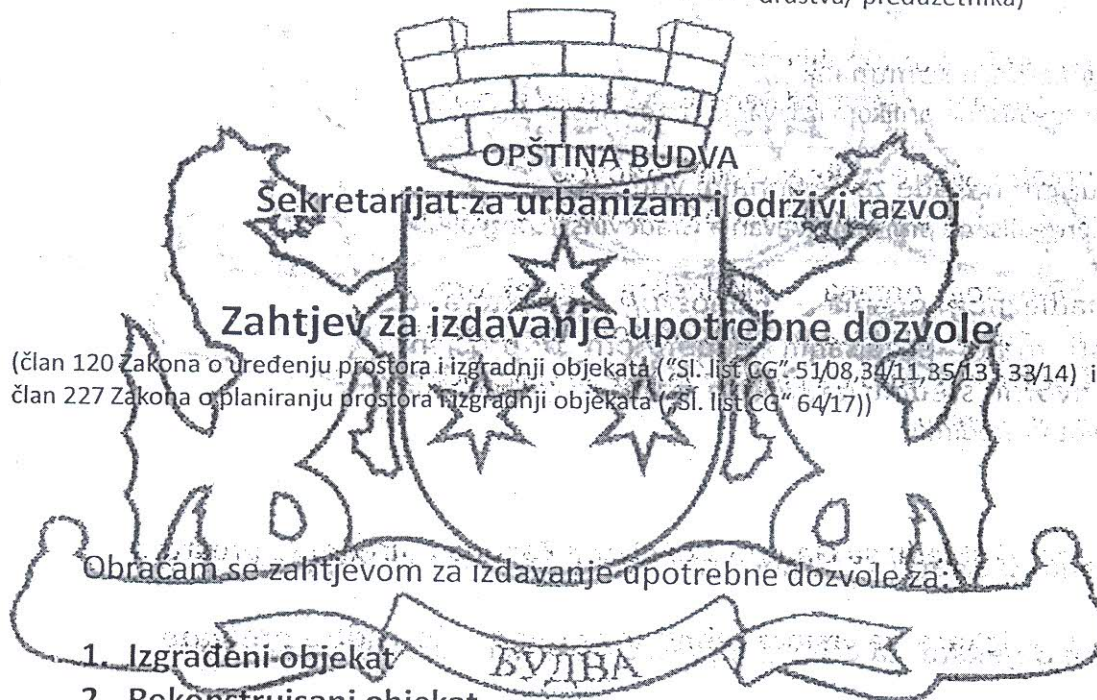 društva/ preduzetnika)
OPŠTINA BUDVA
Sekretarijat za urbanizam i održivi razvoj
Zahtjev za izdavanje upotrebne dozvole
(član 120 Zakona o uređenju prostora i izgradnji objekata ("Sl. list CG". 51/08,34/11,35/13 i 33/14) i
član 227 Zakona o planiranju prostora i izgradnji objekata („Sl. list CG“ 64/17))
Obraćam se zahtjevom za izdavanje upotrebne dozvole za:
1. Izgrađeni objekat
БУДВА
2. Rekonstruisani objekat